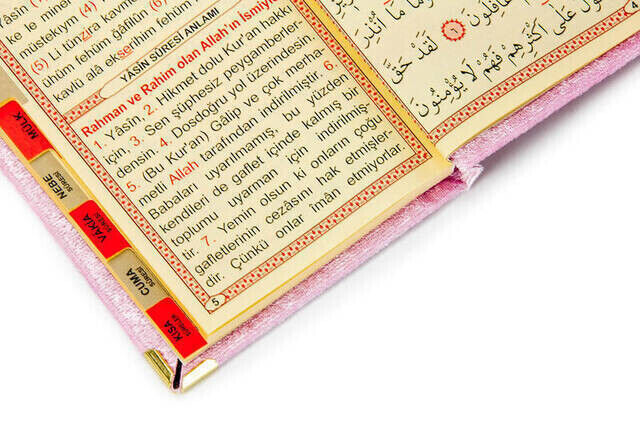 Yâsîn
müstekıym (4)
(5) Li tünzira kavmen
ühüm fehüm ğâfilûn (6)
kavlü alâ ekserihim fehüm
YÂSÎN SÛRESİ ANLAMI
Rahman ve Rahim olan Allah'ın İsmiyle
1. Yâsîn. 2. Hikmet dolu Kur'an hakkı
için, 3. Sen şüphesiz peygamberler-
densin. 4. Dosdoğru yol üzerindesin.
5. (Bu Kur'an) Gâlip ve çok merha-
metli Allah tarafından indirilmiştir. 6.
Babaları uyarılmamış, bu yüzden
kendileri de gaflet içinde kalmış bir
toplumu uyarman için indirilmiş-
tir. 7. Yemin olsun ki onların çoğu
gafletlerinin cezasını hak etmişler-
dir. Çünkü onlar imân etmiyorlar.
5
مَا أُنْذِرَ
غَافِلُونَ ٦ لَقَدْ حَقَّ
عَلَى أَكْثَرِهِمْ فَهُمْ لَا يُؤْمِنُونَ
MÜLK
NEBE
SÛRESİ
VÂKIA
SÛRESİ
CUMA
SÛRESİ
KISA
SÛRELER